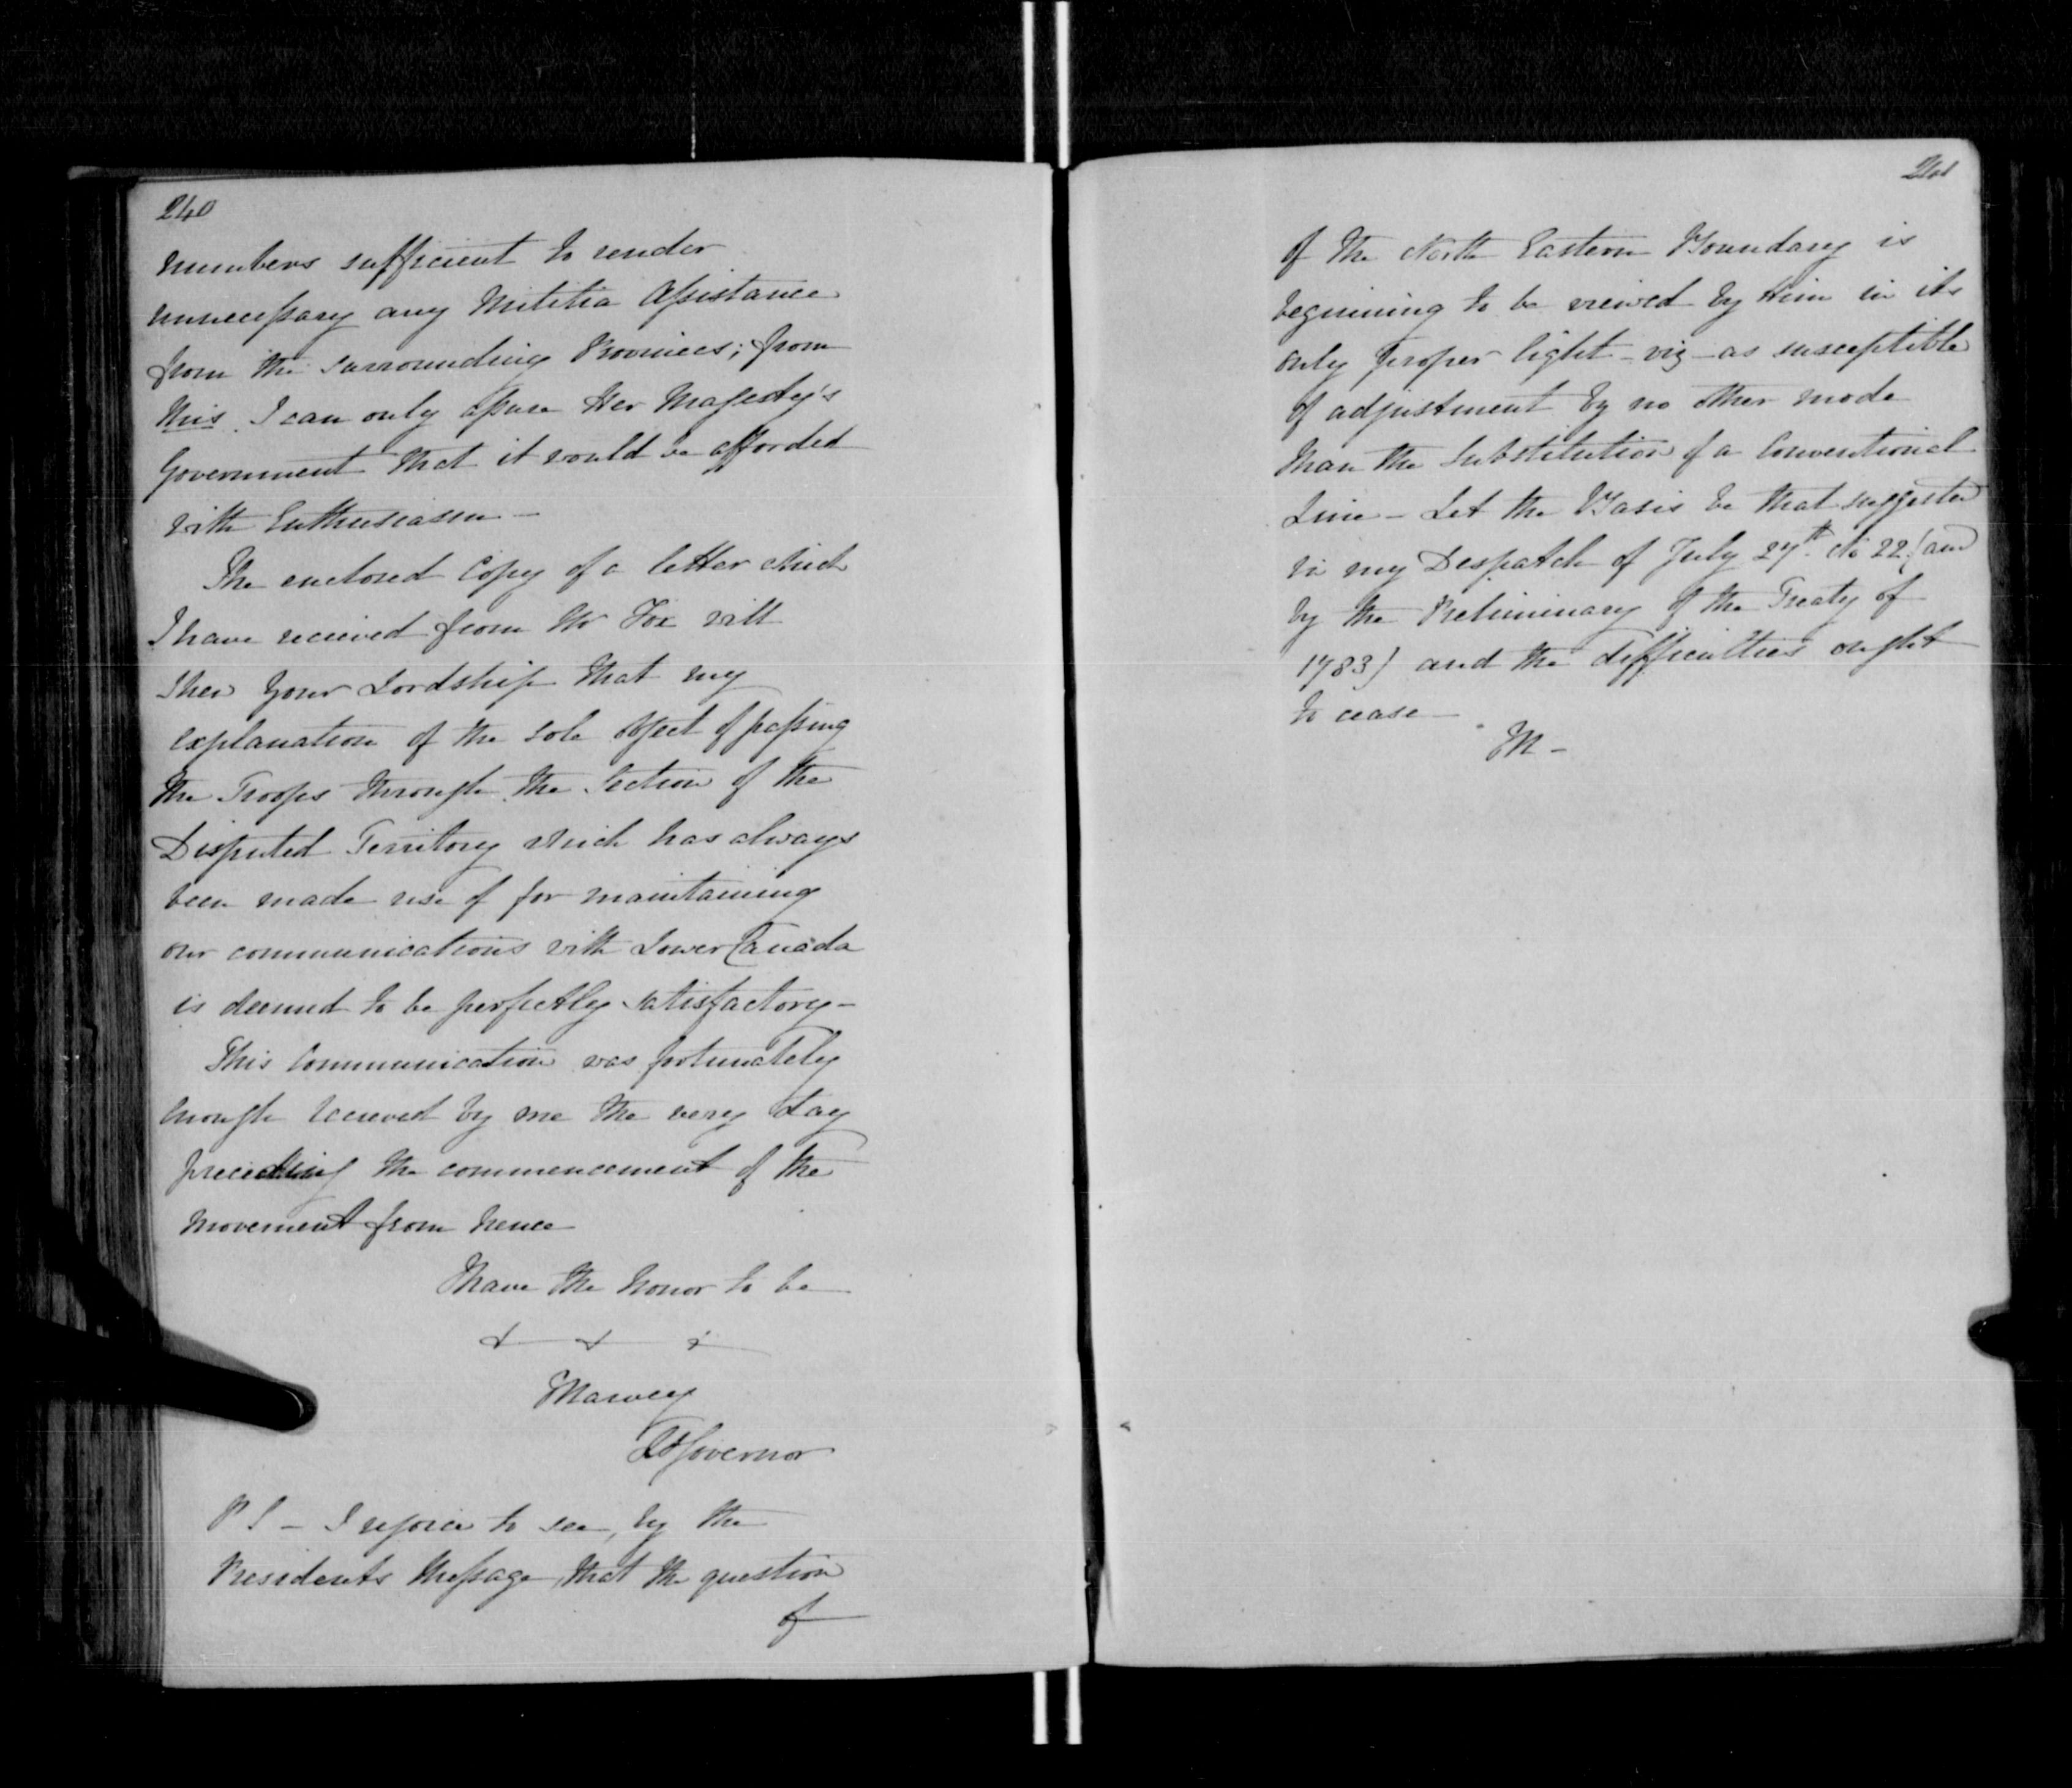 240
numbers sufficient to render
unnecessary any Militia Assistance
from the surrounding Provinces; from
this I can only assure Her Majesty's
Government that it would be afforded
with Enthusiasm —
The enclosed Copy of a letter which
I have received from Mr Fox will
shew Your Lordship that my
explanation of the sole object of passing
the Troops through the Section of the
Disputed Territory which has always
been made use of for maintaining
our communications with Lower Canada
is deemed to be perfectly satisfactory —
This Communication was fortunately
enough received by me the very day
preceding the commencement of the
movement from hence
I have the honor to be
+ + +
JHarvey
Lt Governor
P S — I rejoice to see, by the
Presidents Message, that the question
of
241
of the North Eastern Boundary is
beginning to be viewed by Him in its
only proper light — viz — as susceptible
of adjustment by no other mode
than the Substitution of a Conventional
Line — Let the Basis be that suggested
in my Despatch of July 27th No 22 (and
by the Preliminary of the Treaty of
1783) and the difficulties ought
to cease —
JH —